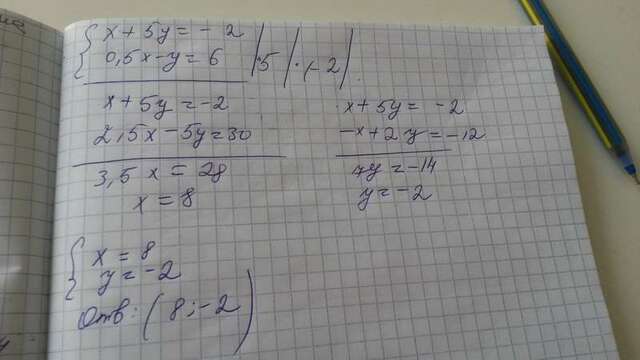 x + 5y = - 2
0,5x - y = 6 | ·5 | · (-2) |
x + 5y = -2
2,5x - 5y = 30
3,5 x = 28
x = 8
x + 5y = -2
-x + 2y = -12
7y = -14
y = -2
x = 8
y = -2
Отв: (8; -2)